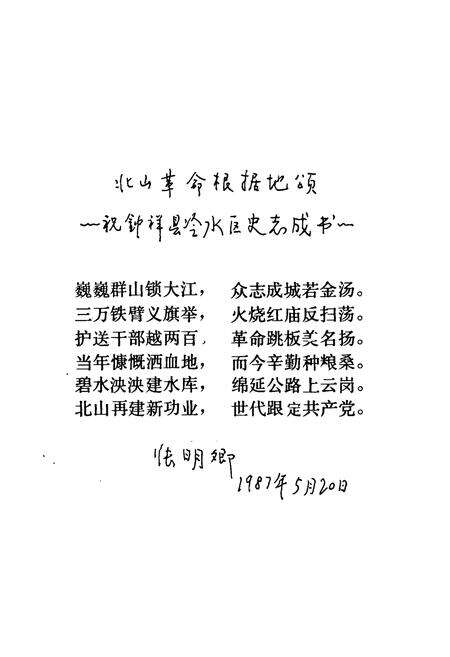 北山革命根据地颂
—祝钟祥县冷水区史志成书—
巍巍群山锁大江， 众志成城若金汤。
三万铁臂义旗举， 火烧红庙反扫荡。
护送干部越两百， 革命跳板美名扬。
当年慷慨洒血地， 而今辛勤种粮桑。
碧水泱泱建水库， 绵延公路上云岗。
北山再建新功业， 世代跟定共产党。
张明卿
1987年5月20日